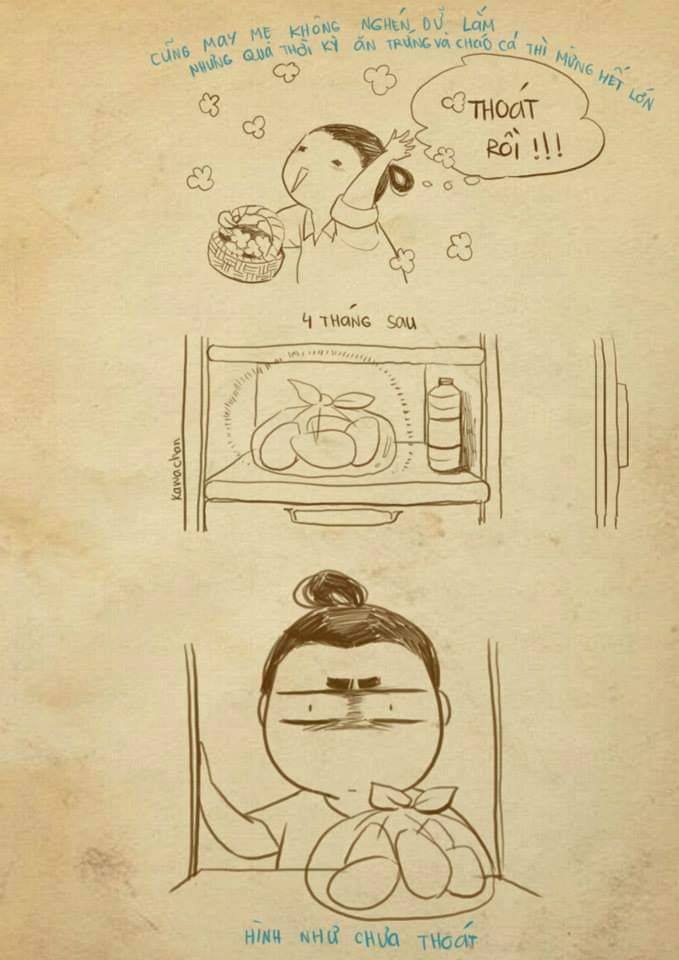 CŨNG MAY MẸ KHÔNG NGHÉN DỮ LẮM
NHƯNG QUA THỜI KỲ ĂN TRỨNG VÀ CHÁO CÁ THÌ MỪNG HẾT LỚN
THOÁT
RỒI !!!
4 THÁNG SAU
Kawachan
HÌNH NHƯ CHƯA THOÁT